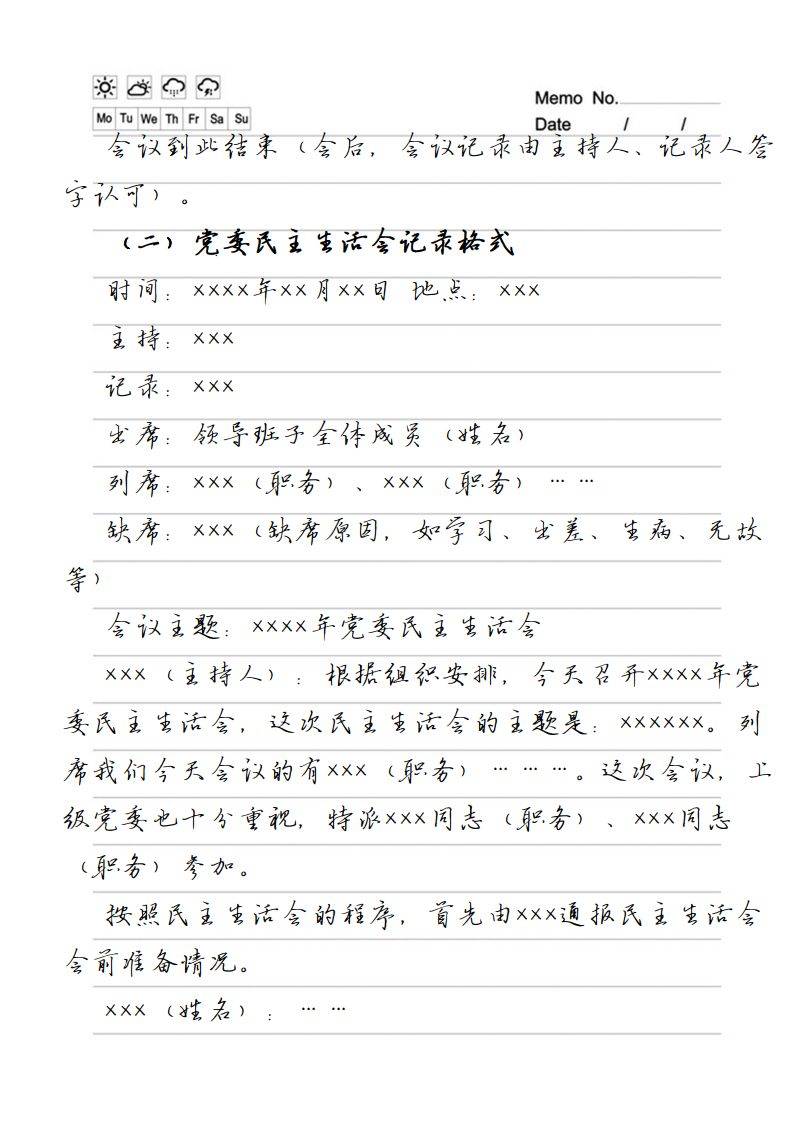 Memo No.
Mo Tu We Th Fr Sa Su
Date / /
会议到此结束（会后，会议记录由主持人、记录人签
字认可）。
（二）党委民主生活会记录格式
时间：××××年××月××日 地点：×××
主持：×××
记录：×××
出席：领导班子全体成员（姓名）
列席：×××（职务）、×××（职务）… …
缺席：×××（缺席原因，如学习、出差、生病、无故
等）
会议主题：××××年党委民主生活会
×××（主持人）：根据组织安排，今天召开××××年党
委民主生活会，这次民主生活会的主题是：××××××。列
席我们今天会议的有×××（职务）… … …。这次会议，上
级党委也十分重视，特派×××同志（职务）、×××同志
（职务）参加。
按照民主生活会的程序，首先由×××通报民主生活会
会前准备情况。
×××（姓名）：… …